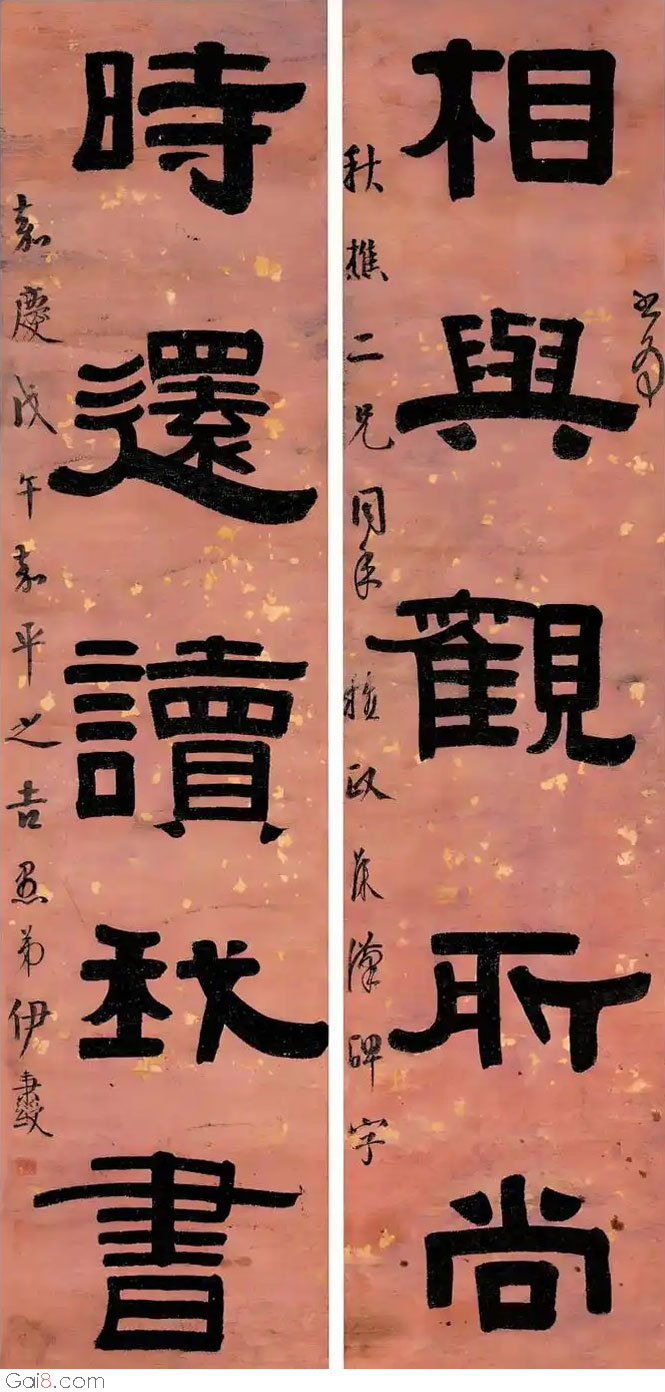 書奉
相與觀所尚
秋樵二兄同年政漢碑字
時還讀我書
嘉慶戊午嘉平之吉愚弟伊秉綬
Gai8.com